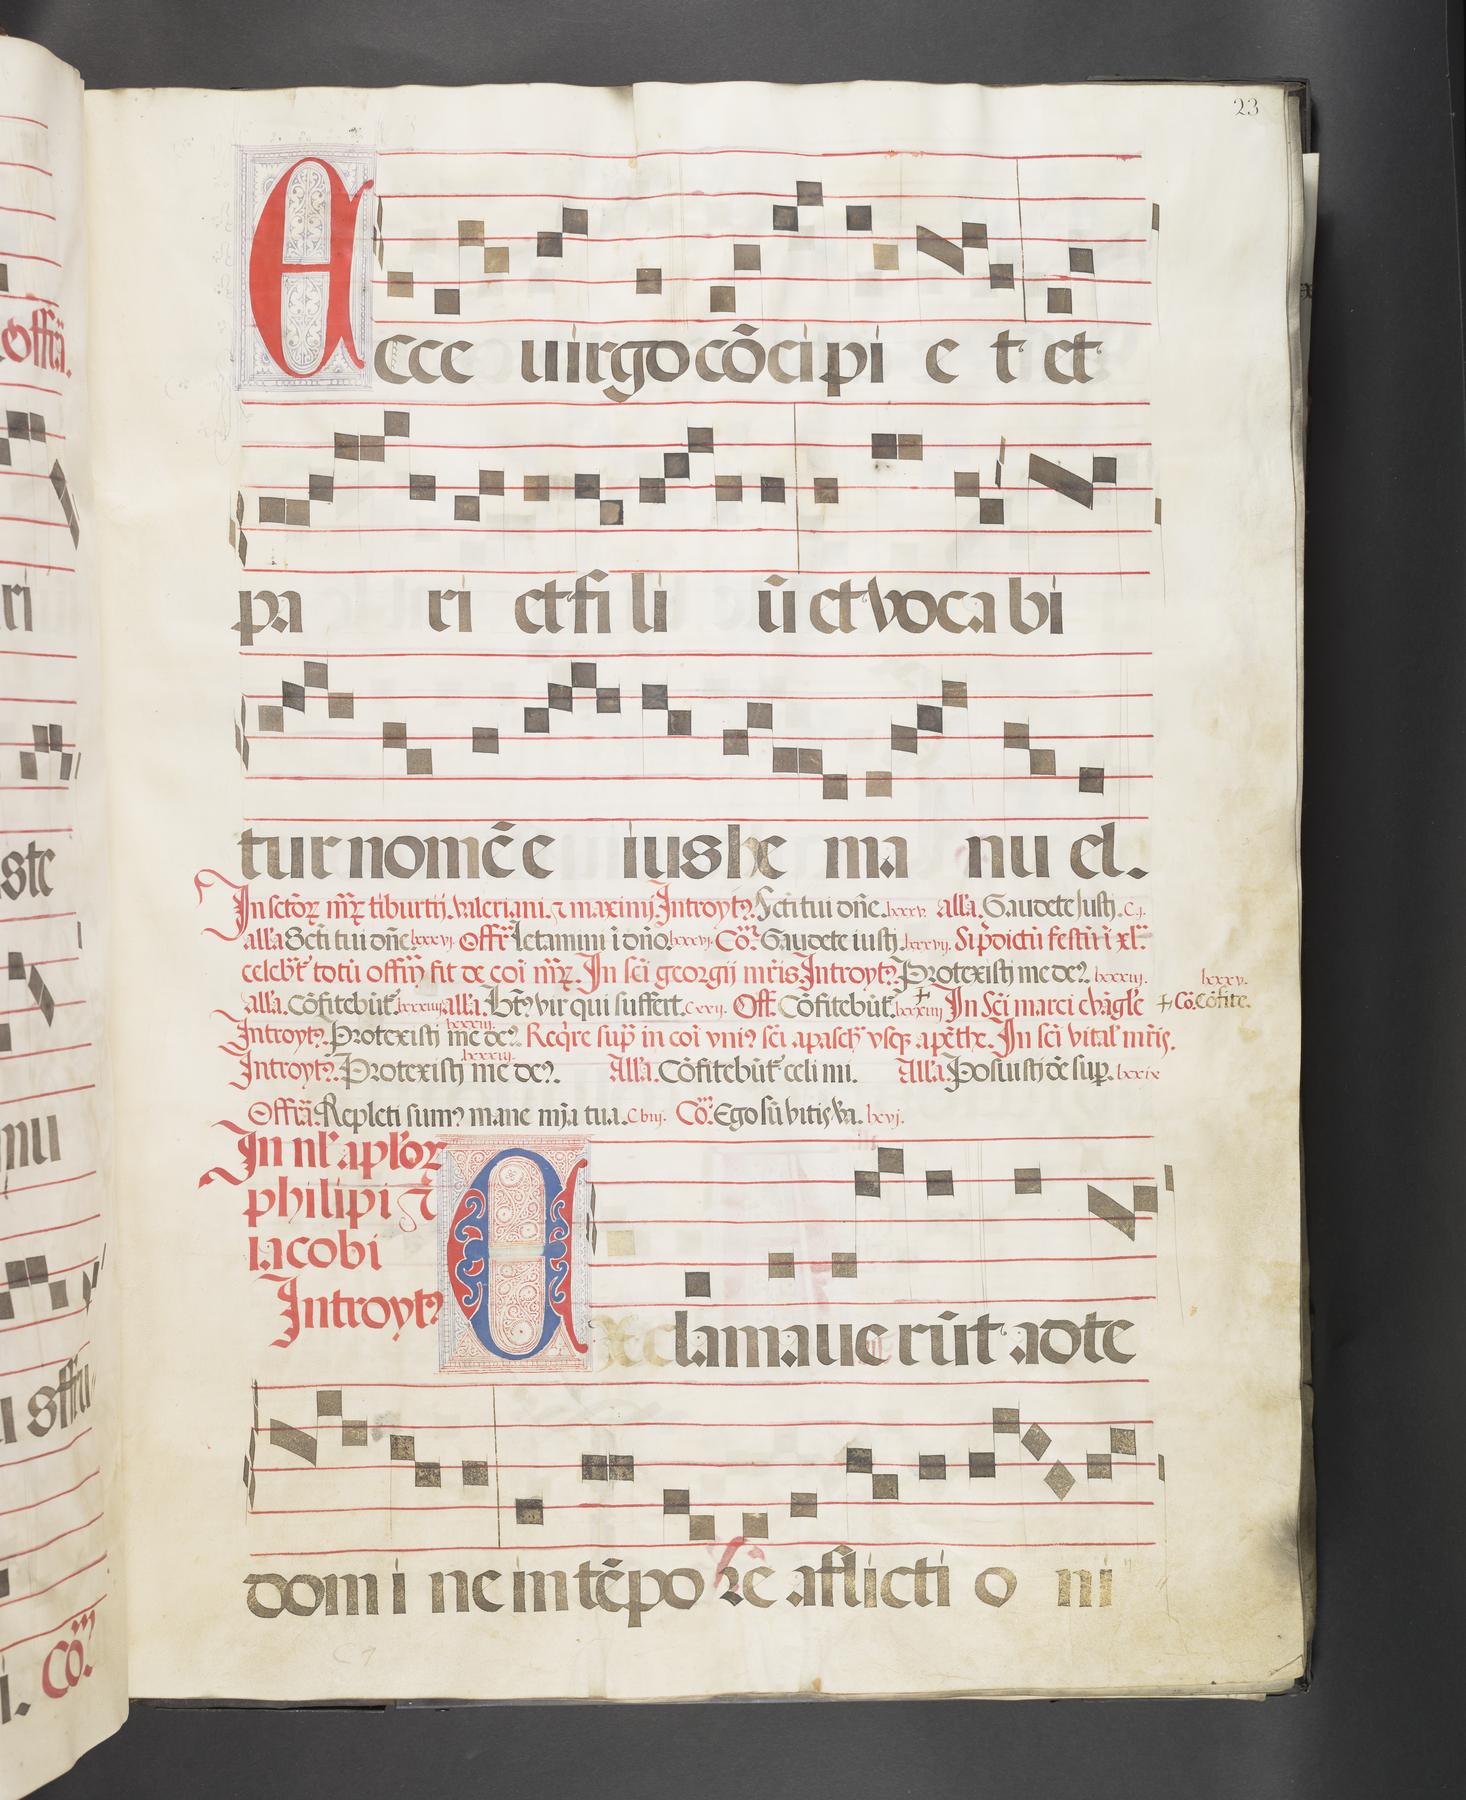 23
Ecce uirgo cõcipi e t et
pa ri et fi li ũ et voca bi
tur nomẽ e ius he ma nu el.
In sctõꝝ mr̃ꝝ tiburtij. valeriani. ⁊ maximi. Introyt⁹. Scti tui dñe. lxxxv. all'a. Gaudete iusti. C.j.
all'a Scti tui dñe lxxxvj. Offr̃ Letamini ĩ dño. lxxxvj. Cõ. Gaudete iusti. lxxxvij. Si p̃dictũ festũ ĩ xl.
celebr̃t totũ offm̃ fit de coĩ mr̃ꝝ. In sci georgij mr̃is. Introyt⁹. Protexisti me de⁹. lxxxiij.
all'a. Cõfitebũt. lxxxiiij all'a. Bt̃⁹ vir qui suffert. Cxxij. Off. Cõfitebũt. lxxxiiij + In Sci marci evãgl'e + Cõ. Cõfite. lxxxv.
Introyt⁹. Protexisti me de⁹. lxxxiij. Req̃re sup̃ in coĩ vni⁹ sci a pasch' vsqꝫ a pẽthe. In sci vital' mr̃is.
Introyt⁹. Protexisti me de⁹. lxxxiij. All'a. Cõfitebũt celi mi. All'a. Posuisti dẽ sup. lxxix
Offr̃a. Repleti sum⁹ mane mĩa tua. Cõ. Ego sũ vitis va. lxvj.
In nt' apl'oꝝ
philipi ⁊
iacobi
Introyt⁹
Exclamaue rũt ad te
dom i ne in tẽpo re aflicti o ni